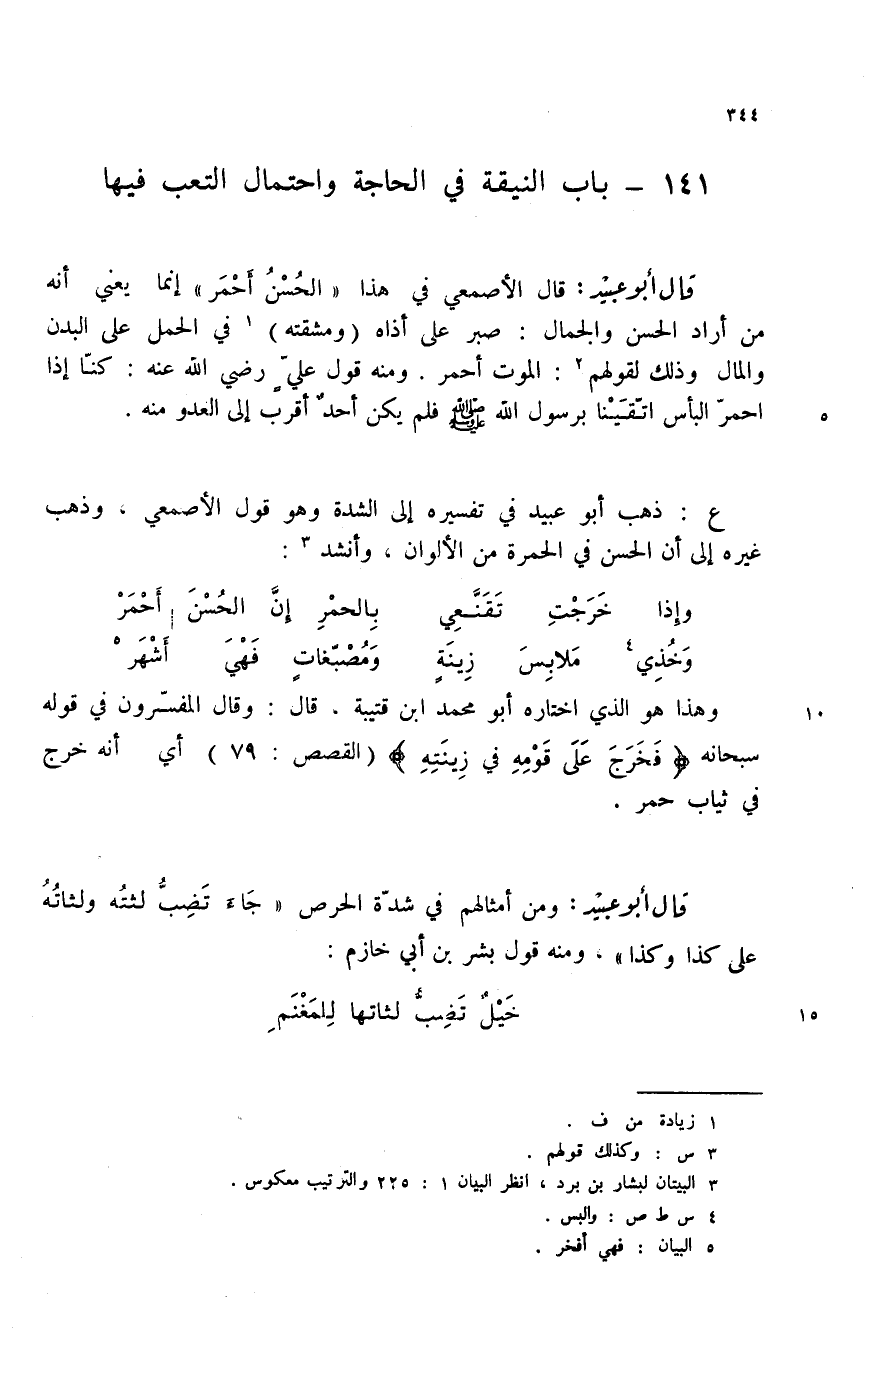 ٣٤٤
١٤١ – باب النيقة في الحاجة واحتمال التعب فيها
قال أبو عبيد : قال الأصمعي في هذا « الحُسْنُ أَحْمَر » إنما يعني أنه
من أراد الحسن والجمال : صبر على أذاه ( ومشقته ) ١ في الحمل على البدن
والمال وذلك لقولهم ٢ : الموت أحمر . ومنه قول عليّ رضي الله عنه : كنّا إذا
احمرّ البأس اتّقَيْنا برسول الله ﷺ فلم يكن أحدٌ أقرب إلى العدو منه .
٥
ع : ذهب أبو عبيد في تفسيره إلى الشدة وهو قول الأصمعي ، وذهب
غيره إلى أن الحسن في الحمرة من الألوان ، وأنشد ٣ :
وإذا خَرَجْتِ تَقَنَّعِي بِالحمْرِ إنَّ الحُسْنَ أَحْمَرْ
وَخُذِي ٤ مَلابِسَ زِينَةٍ وَمُصَبّغاتٍ فَهْيَ أَشْهَرْ ٥
وهذا هو الذي اختاره أبو محمد ابن قتيبة . قال : وقال المفسّرون في قوله
١٠
سبحانه ﴿ فَخَرَجَ عَلَى قَوْمِهِ في زِينَتِهِ ﴾ ( القصص : ٧٩ ) أي أنه خرج
في ثياب حمر .
قال أبو عبيد : ومن أمثالهم في شدّة الحرص « جَاءَ تَضِبُّ لثتُه ولثاتُهُ
على كذا وكذا » ، ومنه قول بشر بن أبي خازم :
خَيْلٌ تَضِبُّ لثاتها لِلمَغْنَمِ
١٥
١ زيادة من ف .
٣ س : وكذلك قولهم .
٣ البيتان لبشار بن برد ، انظر البيان ١ : ٢٢٥ والترتيب معكوس .
٤ س ط ص : والبس .
٥ البيان : فهي أفخر .